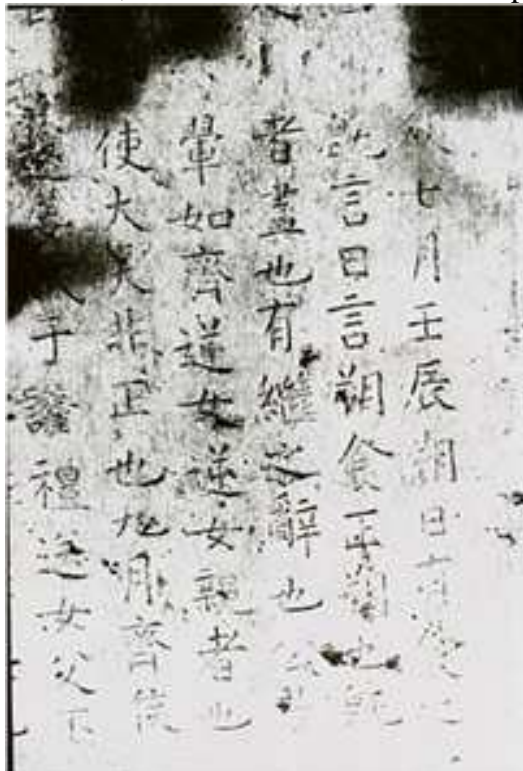 秋七月壬辰朔日有食之
既言日言朔食正朔也既
者盡也有繼之辭也公子
翬如齊逆女逆女親者也
使大夫非正也九月齊侯
送姜氏于讙禮送女父不